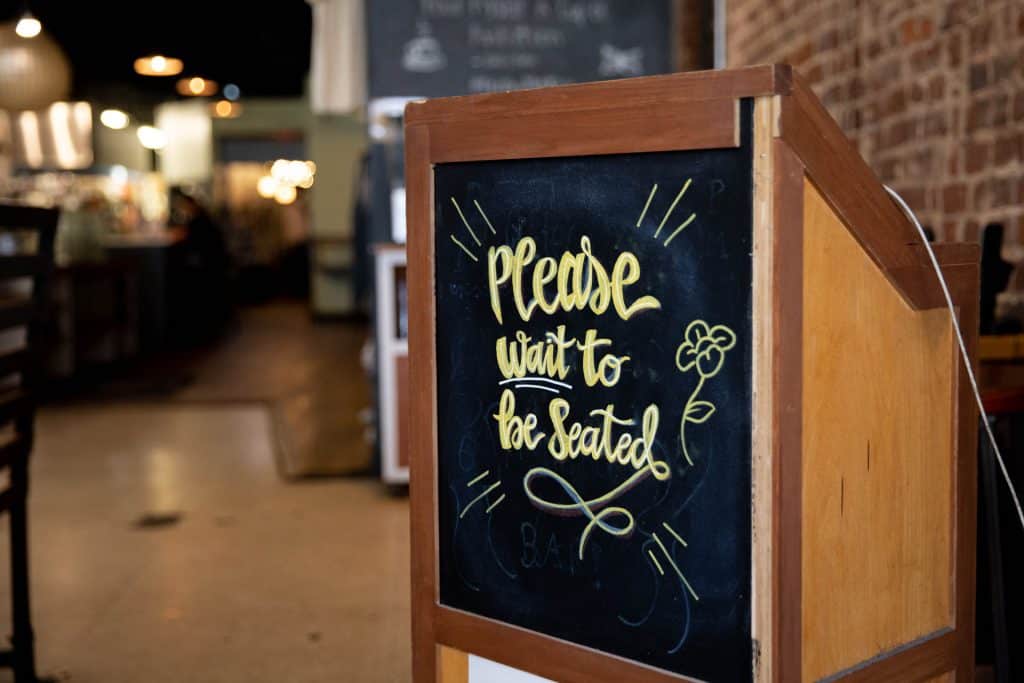 Please
wait to
be Seated